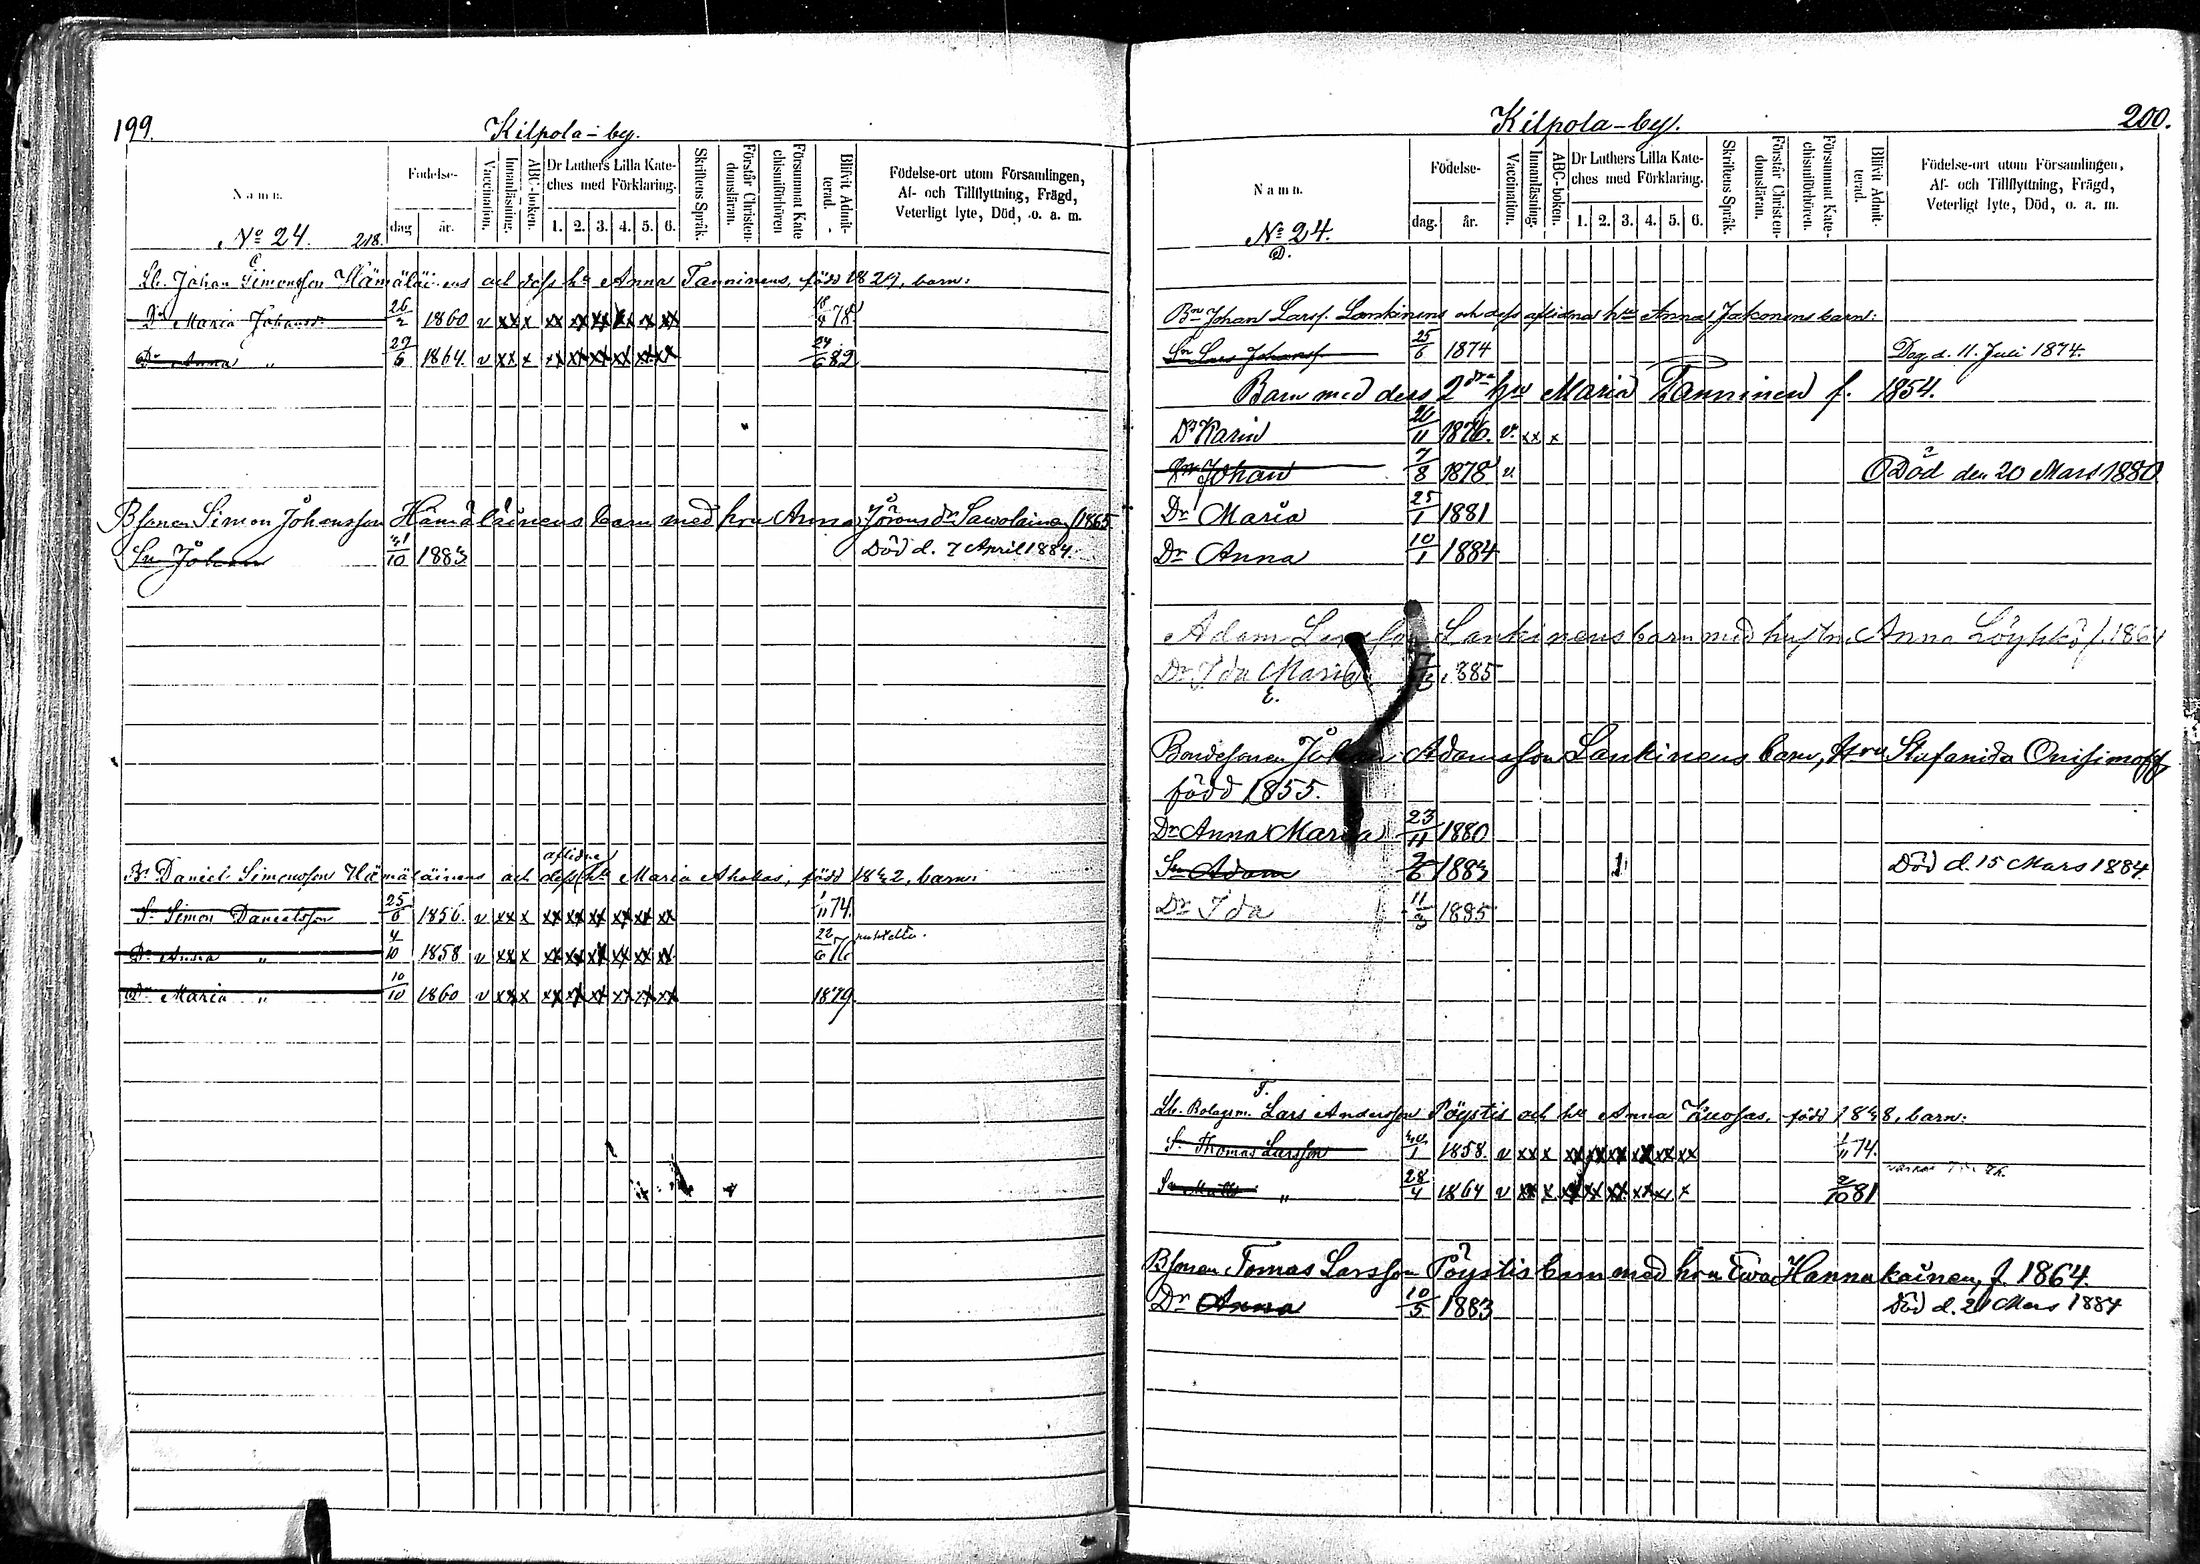 199. Kilpola-by.
Namn.
Födelse-
dag
år.
Vaccination.
Innanläsning.
ABC-boken.
Dr Luthers Lilla Kate-
ches med Förklaring.
1. 2. 3. 4. 5. 6.
Skriftens Språk.
Förstår Christen-
domsläran.
Försummat Kate
chismiförhören
Blifvit Admit-
terad.
Födelse-ort utom Församlingen,
Af- och Tillflyttning, Frägd,
Veterligt lyte, Död, o. a. m.
No 24. 218.
C
Lb. Johan Simonsson Hämäläinens och dess h. Anna Tanninens, född 1829, barn:
Dr Maria Johansd. 26/2 1860 v xx x xx xx xx xx xx xx 18/4 78.
Dr Anna " 27/6 1864. v xx x xx xx xx xx xx xx 24/6 82
Bsonen Simon Johansson Hämäläinens barn med hru Anna Jöransdr Sawolainen f 1865
Sn Johan 31/10 1883 Död d. 7 April 1884.
aflidne
B. Daniel Simonsson Hämäläinens och dess h. Maria Ahokas, född 1832, barn:
S. Simon Danielsson 25/6 1856. v xx x xx xx xx xx xx xx 1/11 74.
Dr Anna " 4/10 1858 v xx x xx xx xx xx xx xx 22/6 76
Dr Maria " 10/10 1860 v xx x xx xx xx xx xx xx 1879.
Kilpola-by. 200.
Namn.
Födelse-
dag.
år.
Vaccination.
Innanläsning.
ABC-boken.
Dr Luthers Lilla Kate-
ches med Förklaring.
1. 2. 3. 4. 5. 6.
Skriftens Språk.
Förstår Christen-
domsläran.
Försummat Kate-
chismiförhören.
Blifvit Admit-
terad.
Födelse-ort utom Församlingen,
Af- och Tillflyttning, Frägd,
Veterligt lyte, Död, o. a. m.
No 24.
D.
Bn Johan Larss. Lankinens och dess aflidna hru Anna Jakonens barn:
Sn Lars Johanss. 25/6 1874 Dog d. 11. Juli 1874.
Barn med dess 2dra hru Maria Tanninen f. 1854.
Dr Karin 26/11 1876. v. xx x
Sn Johan 7/8 1878 v Död den 20 Mars 1880
Dr Maria 25/1 1881
Dr Anna 10/1 1884
Adam Larsson Lankinens barn med hustru Anna Löykkö f. 1864
Dr Ida Maria 1885
E.
Bondesonen Johan Adamsson Lankinens barn, hru Stefanida Onisimoff
född 1855.
Dr Anna Maria 23/11 1880
Sn Adam 2/6 1883 1 Död d. 15 Mars 1884
Dr Ida 11/3 1885
F.
Lb. Bolagsm. Lars Andersson Pöystis och h. Anna född 1838, barn:
S. Thomas Larsson 1858. v xx x xx xx xx xx xx xx 1/11 74.
Sn Matts " 28/4 1864 v xx x xx xx xx xx x x 2/10 81
Bsonen Tomas Larsson Pöystis barn med hru Ewa Hannukainen, f. 1864.
Dr Anna 10/5 1883 Död d. 21 Mars 1884